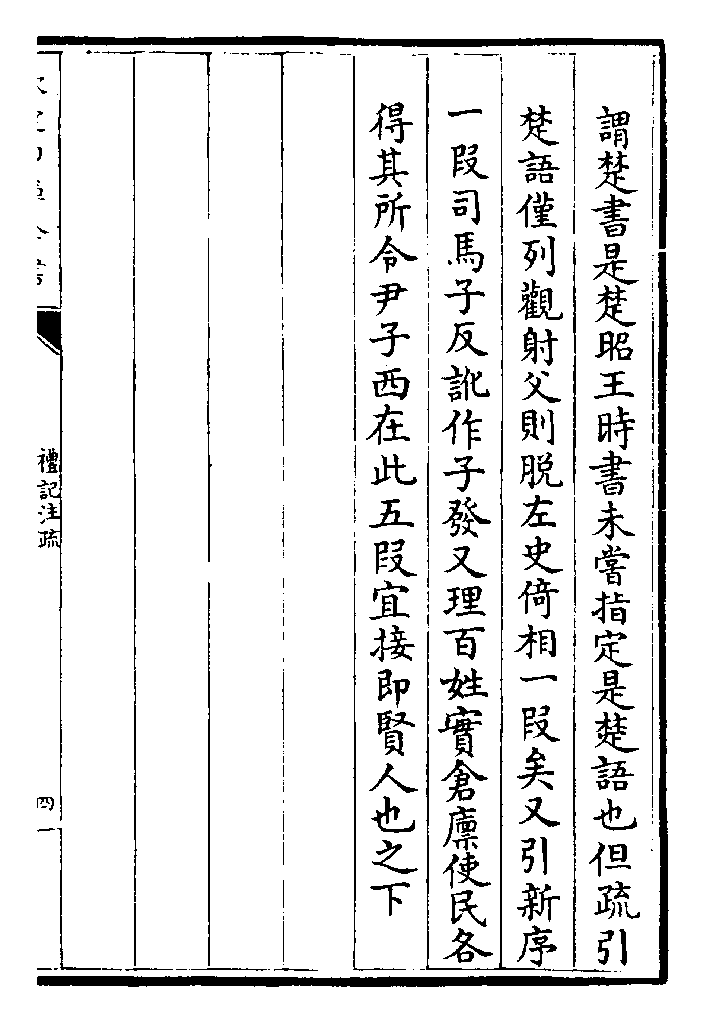 謂楚書是楚昭王時書未嘗指定是楚語也但疏引
楚語僅列觀射父則脱左史倚相一叚矣又引新序
一叚司馬子反訛作子發又理百姓實倉廪使民各
得其所令尹子西在此五叚宜接即賢人也之下
禮記注疏
四